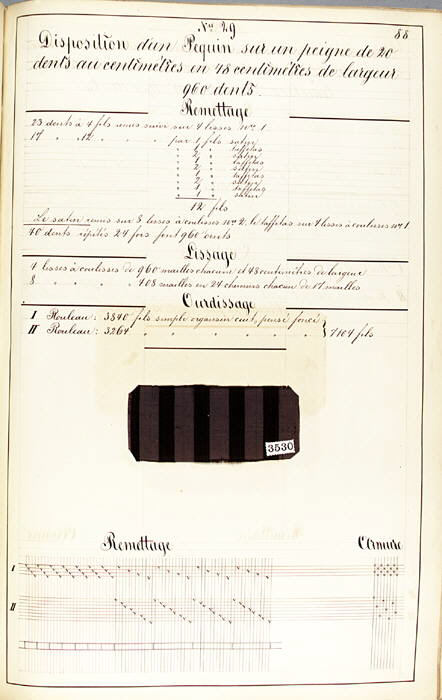 No 29
88
Disposition d'un Pequin sur un peigne de 20
dents au centimètres en 48 centimètres de largeur
960 dents.
Remettage
23 dents à 4 fils remis suivi sur 4 lisses No 1
17 " " 12 " " " par 1 fils satin
" 1 " taffetas
" 2 " satin
" 1 " taffetas
" 2 " satin
" 1 " taffetas
" 2 " satin
" 1 " taffetas
" 1 " satin
12 fils
Le satin remis sur 8 lisses à coulisses No 2. le taffetas sur 4 lisses à coulisses No 1
40 dents répétés 24 fois font 960 dents
Lissage
4 lisses à coulisses de 960 mailles chacune et 48 centimètres de largeur
8 " " " 408 mailles en 24 chemins chacun de 17 mailles
Ourdissage
I Rouleau: 3840 fils simple organsin cuit, pensé foncé
II Rouleau: 3264 " " " " " "
7104 fils
3530
Remettage
Armure
I
II